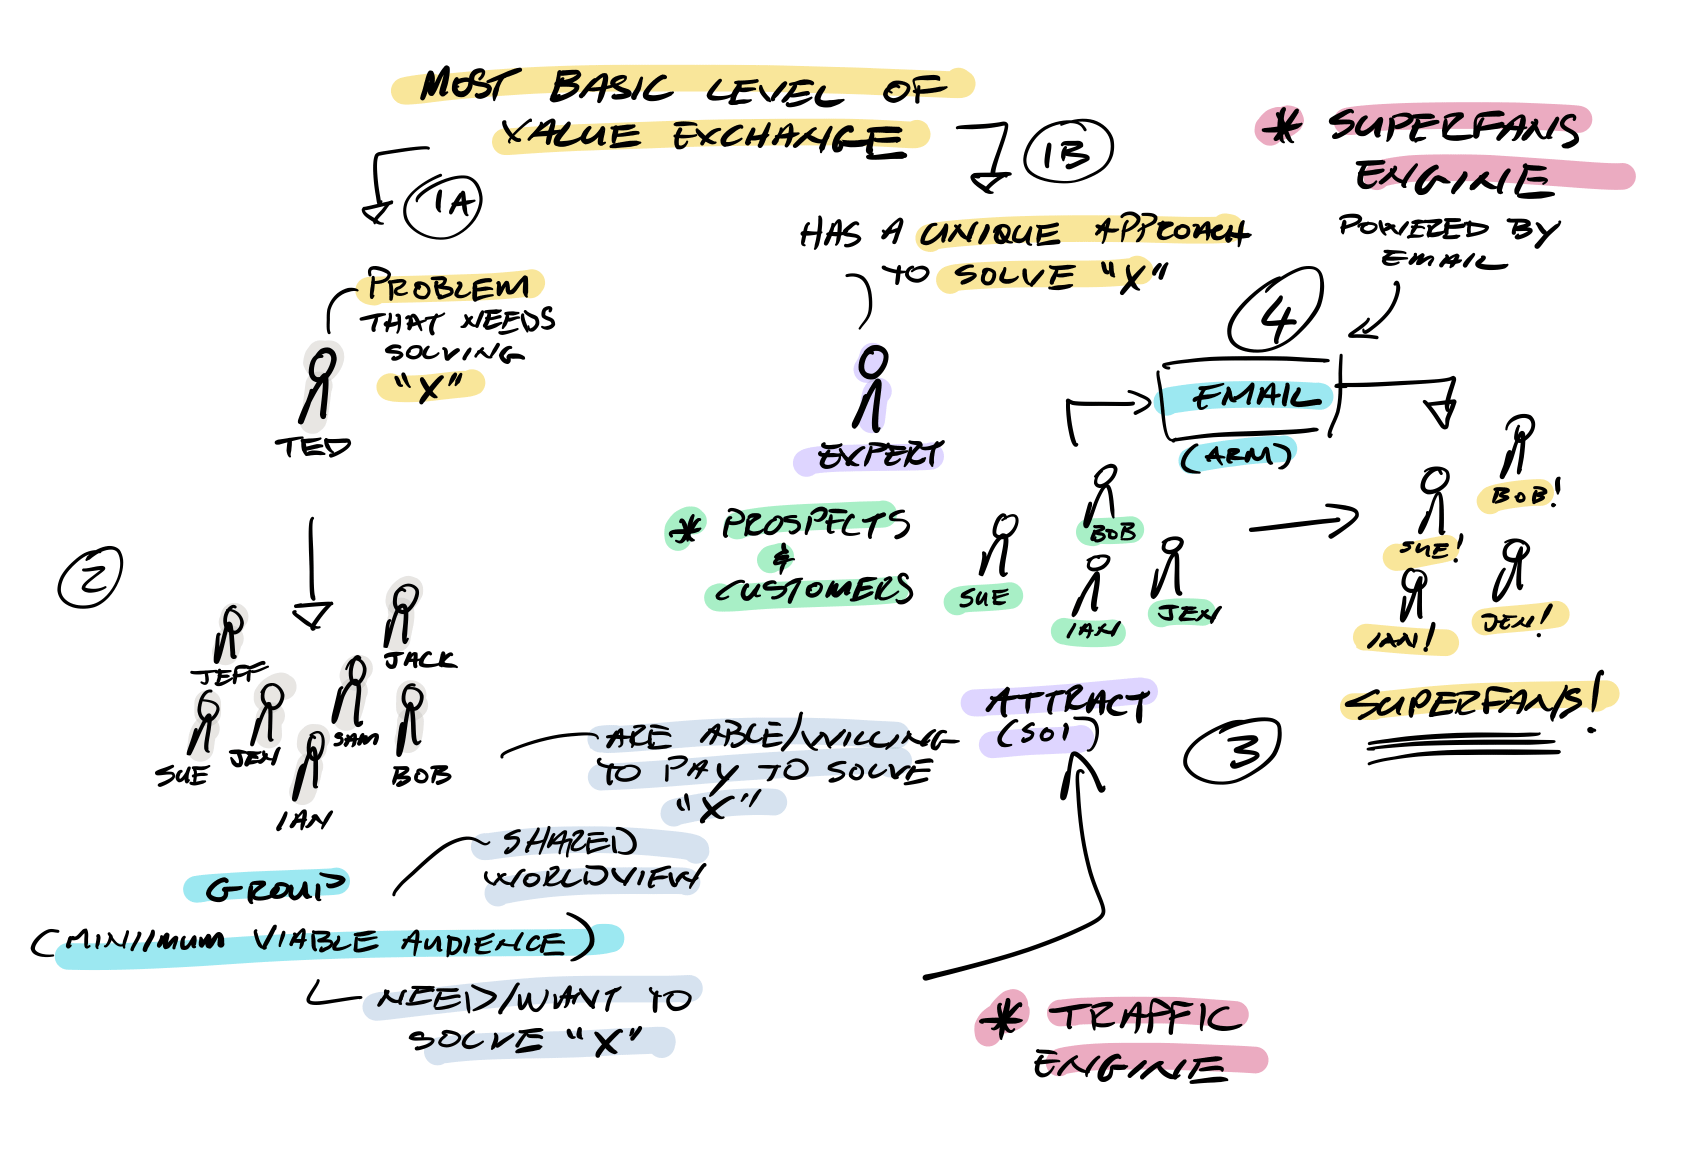 MOST BASIC LEVEL OF
VALUE EXCHANGE
1A
PROBLEM
THAT NEEDS
SOLVING
"X"
TED
1B
HAS A UNIQUE APPROACH
TO SOLVE "X"
EXPERT
2
JEFF
JACK
SUE
JEN
SAM
IAN
BOB
GROUP
(MINIMUM VIABLE AUDIENCE)
ARE ABLE/WILLING
TO PAY TO SOLVE
"X"
SHARED
WORLDVIEW
NEED/WANT TO
SOLVE "X"
* PROSPECTS
&
CUSTOMERS
SUE
BOB
IAN
JEN
ATTRACT
(SOI)
3
* TRAFFIC
ENGINE
* SUPERFANS
ENGINE
POWERED BY
EMAIL
4
EMAIL
(ARM)
BOB!
SUE!
IAN!
JEN!
SUPERFANS!